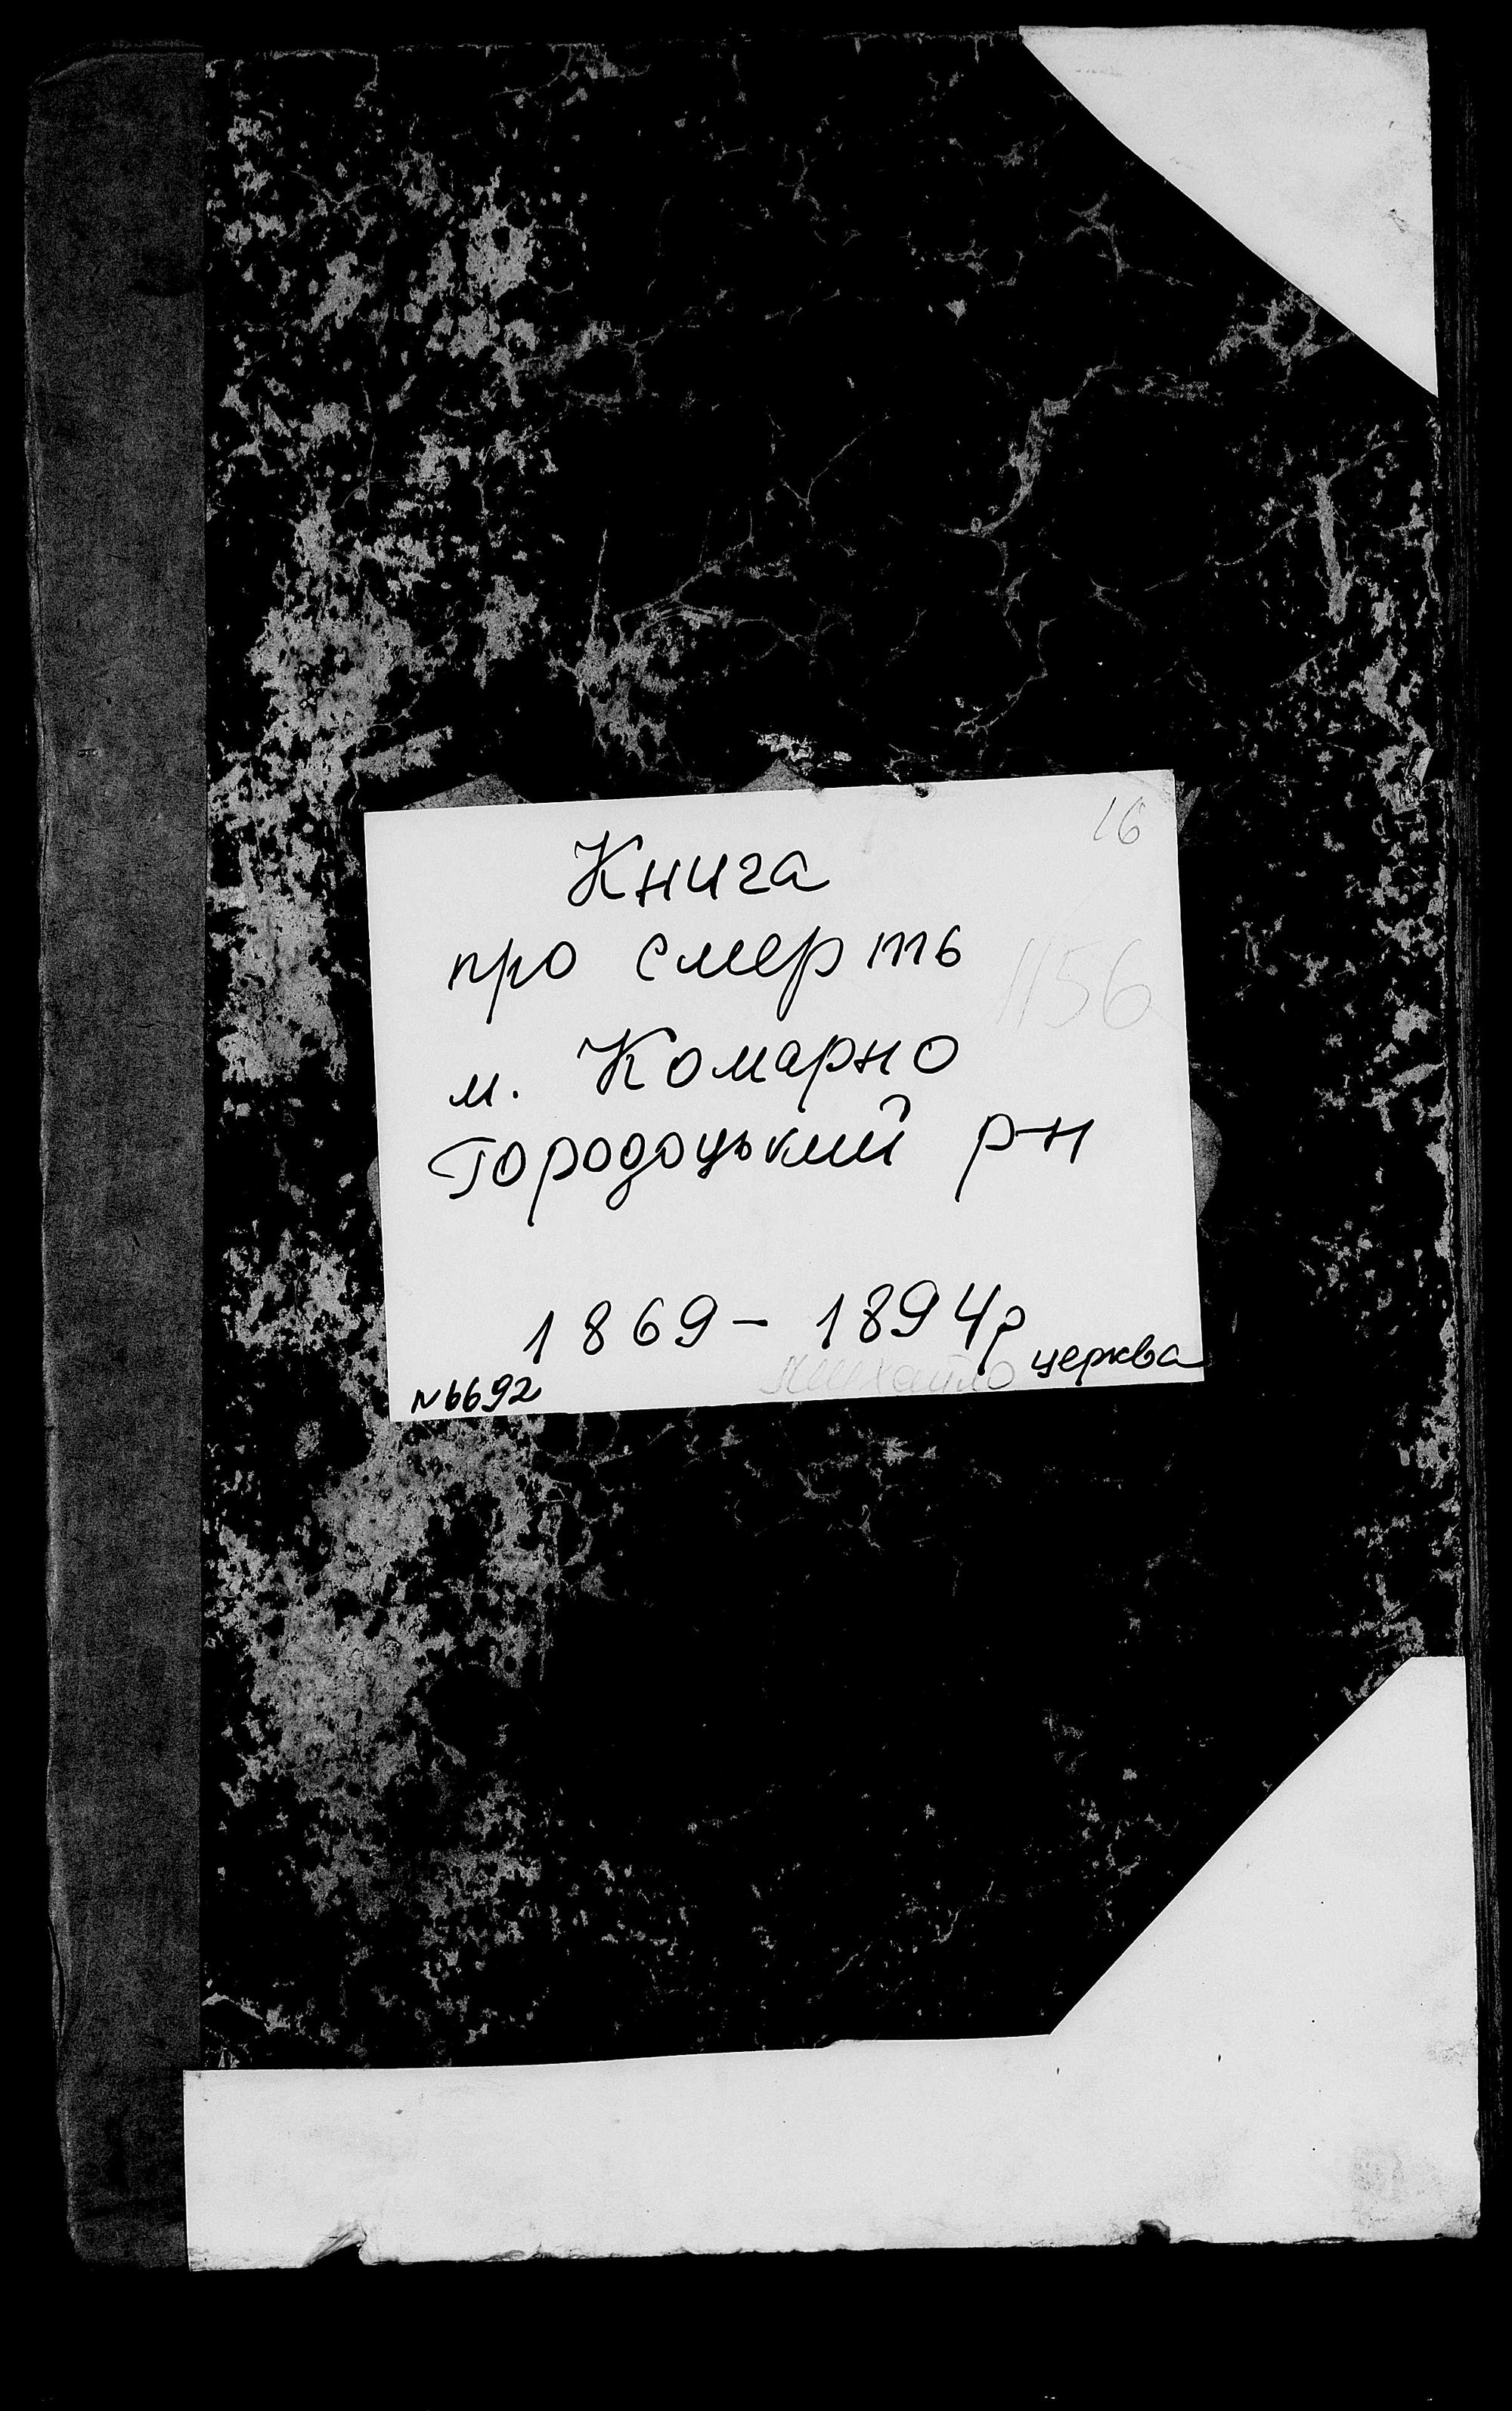 16
Книга
про смерть
1156
м. Комарно
Городоцький р-н
1869 - 1894р
церква
Михайло
№6692